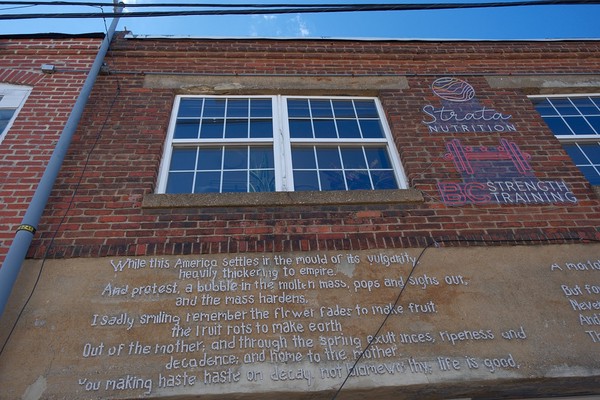 Strata
NUTRITION
BG STRENGTH
TRAINING
While this America settles in the mould of its vulgarity,
heavily thickering to empire.
And protest, a bubble in the molten mass, pops and sighs out,
and the mass hardens,
I sadly smiling remember the flower fades to make fruit,
the fruit rots to make earth
Out of the mother; and through the spring exultances, ripeness and
decadence; and home to the mother.
You making haste haste on decay: not blameworthy; life is good,
A mortal
But for
Never
And